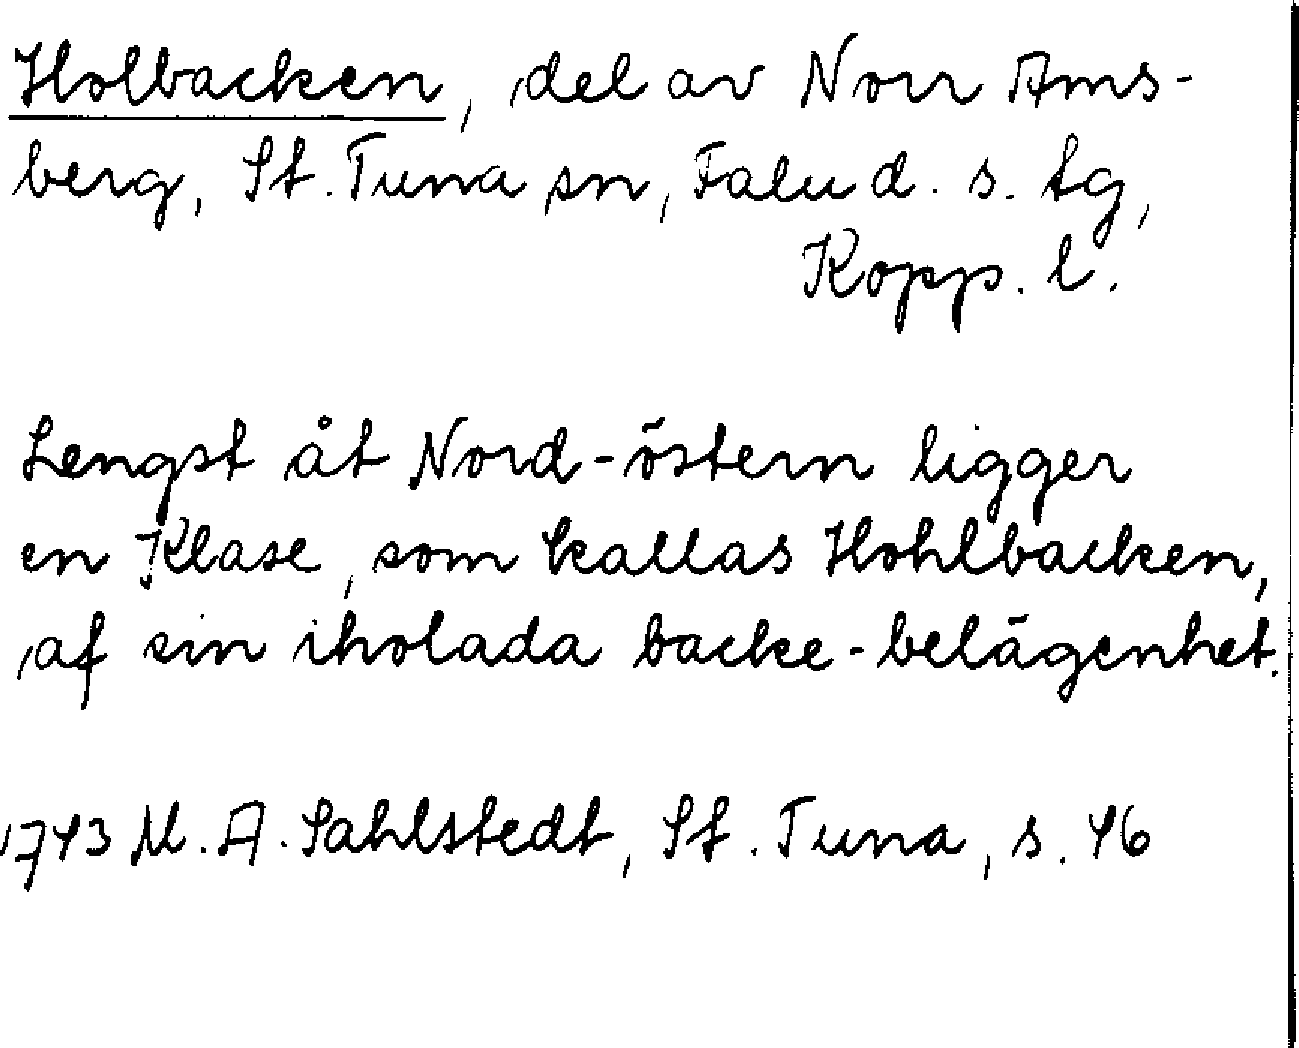 Holbacken, del av Norr Ams-
berg, St. Tuna sn, Falu d. s. tg,
Kopp. l.
Lengst åt Nord-östern ligger
en Klase, som kallas Hohlbacken,
af sin iholada backe-belägenhet.
1743 M. A. Sahlstedt, St. Tuna, s. 46